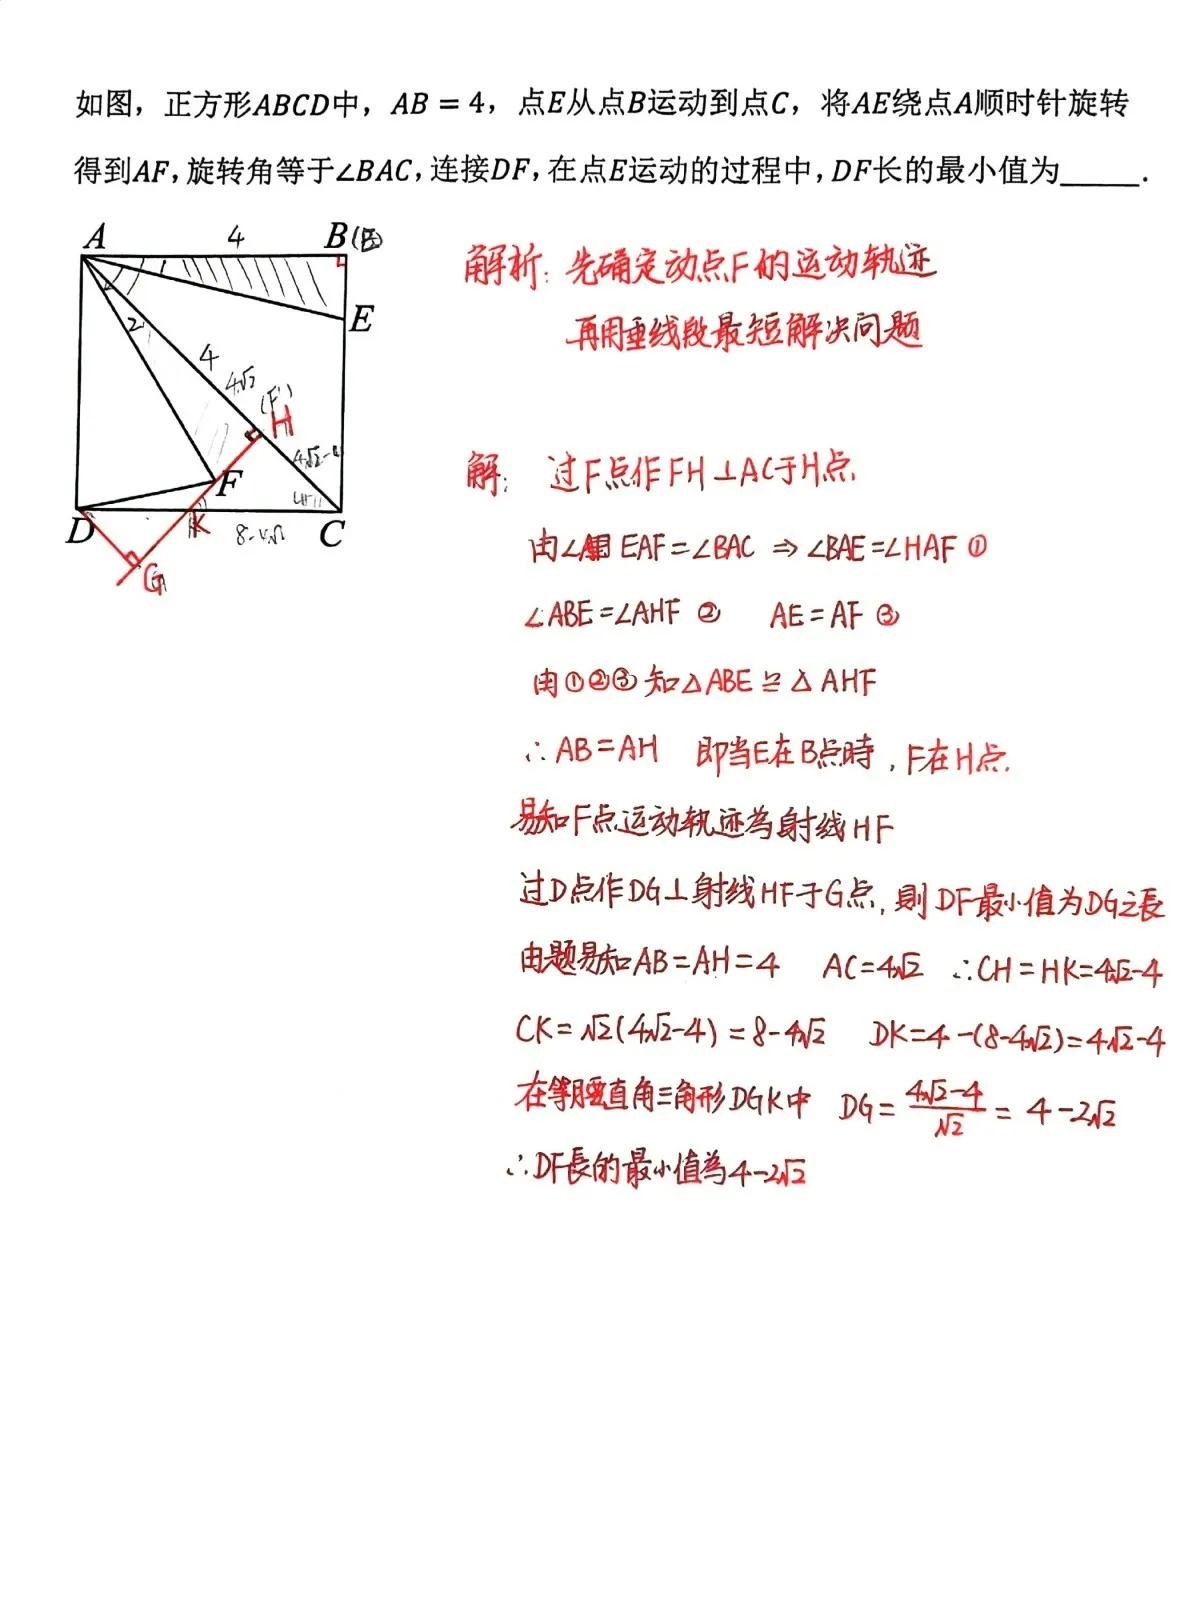 如图，正方形ABCD中，AB = 4，点E从点B运动到点C，将AE绕点A顺时针旋转
得到AF，旋转角等于∠BAC，连接DF，在点E运动的过程中，DF长的最小值为_____.
A 4 B (E)
1
E
2
4
4√2
(F')
H
4√2-4
F
D
K
C
8-4√2
G
解析：先确定动点F的运动轨迹
再用垂线段最短解决问题
解：过F点作FH⊥AC于H点
由∠EAF=∠BAC ⇒ ∠BAE=∠HAF ①
∠ABE=∠AHF ② AE=AF ③
由①②③知△ABE≌△AHF
∴AB=AH 即当E在B点時，F在H点.
易知F点运动轨迹為射线HF
过D点作DG⊥射线HF于G点，则DF最小值为DG之長
由题易知AB=AH=4 AC=4√2 ∴CH=HK=4√2-4
CK=√2(4√2-4)=8-4√2 DK=4-(8-4√2)=4√2-4
在等腰直角三角形DGK中 DG=(4√2-4)/√2=4-2√2
∴DF長的最小值為4-2√2